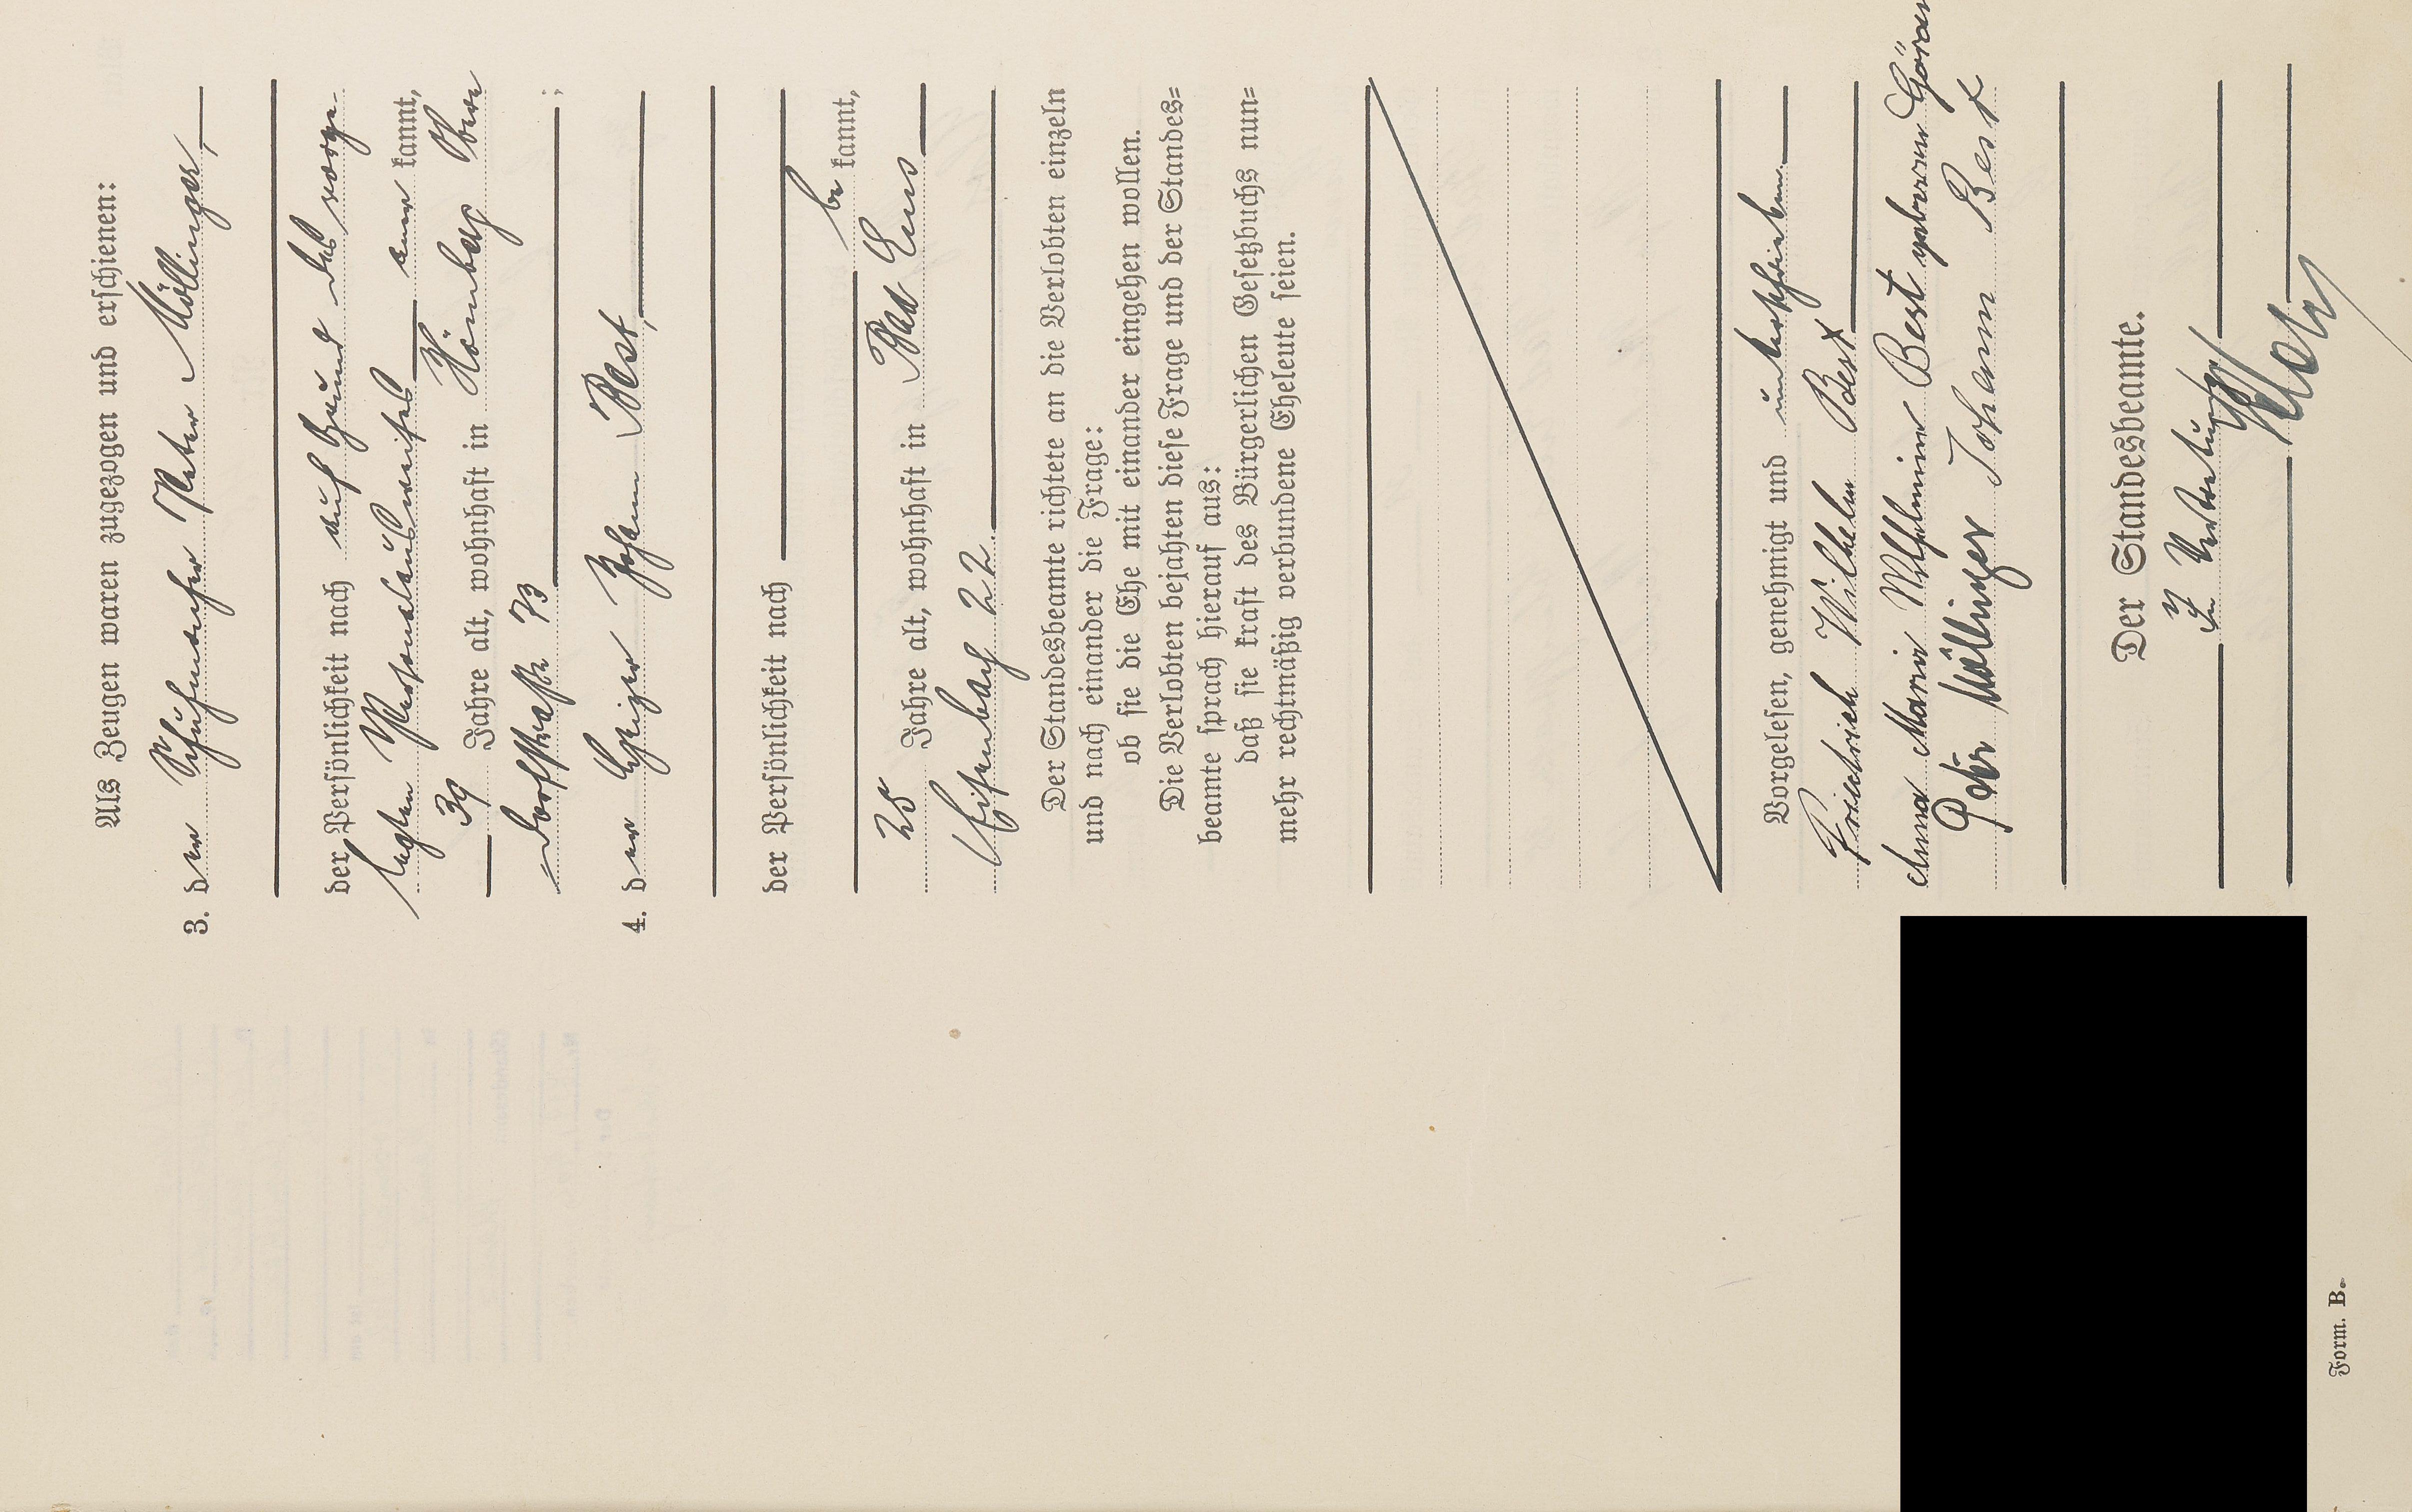 Als Zeugen waren zugezogen und erschienen:
3. der Schuhmacher Peter Möllinger,
der Persönlichkeit nach auf Grund des vorge-
legten Personalausweises aner kannt,
39 Jahre alt, wohnhaft in Hömberg Obere
Dorfstraße 73 ;
4. der Heizer Johann Best,
der Persönlichkeit nach
be kannt,
28 Jahre alt, wohnhaft in Bad Ems
22.
Der Standesbeamte richtete an die Verlobten einzeln
und nach einander die Frage:
ob sie die Ehe mit einander eingehen wollen.
Die Verlobten bejahten diese Frage und der Standes=
beamte sprach hierauf aus:
daß sie kraft des Bürgerlichen Gesetzbuchs nun=
mehr rechtmäßig verbundene Eheleute seien.
Vorgelesen, genehmigt und unterschrieben.
Friedrich Wilhelm Best
Anna Maria Wilhelmine Best geborene
Peter Möllinger Johann Best
Der Standesbeamte.
In Vertretung
Form. B.